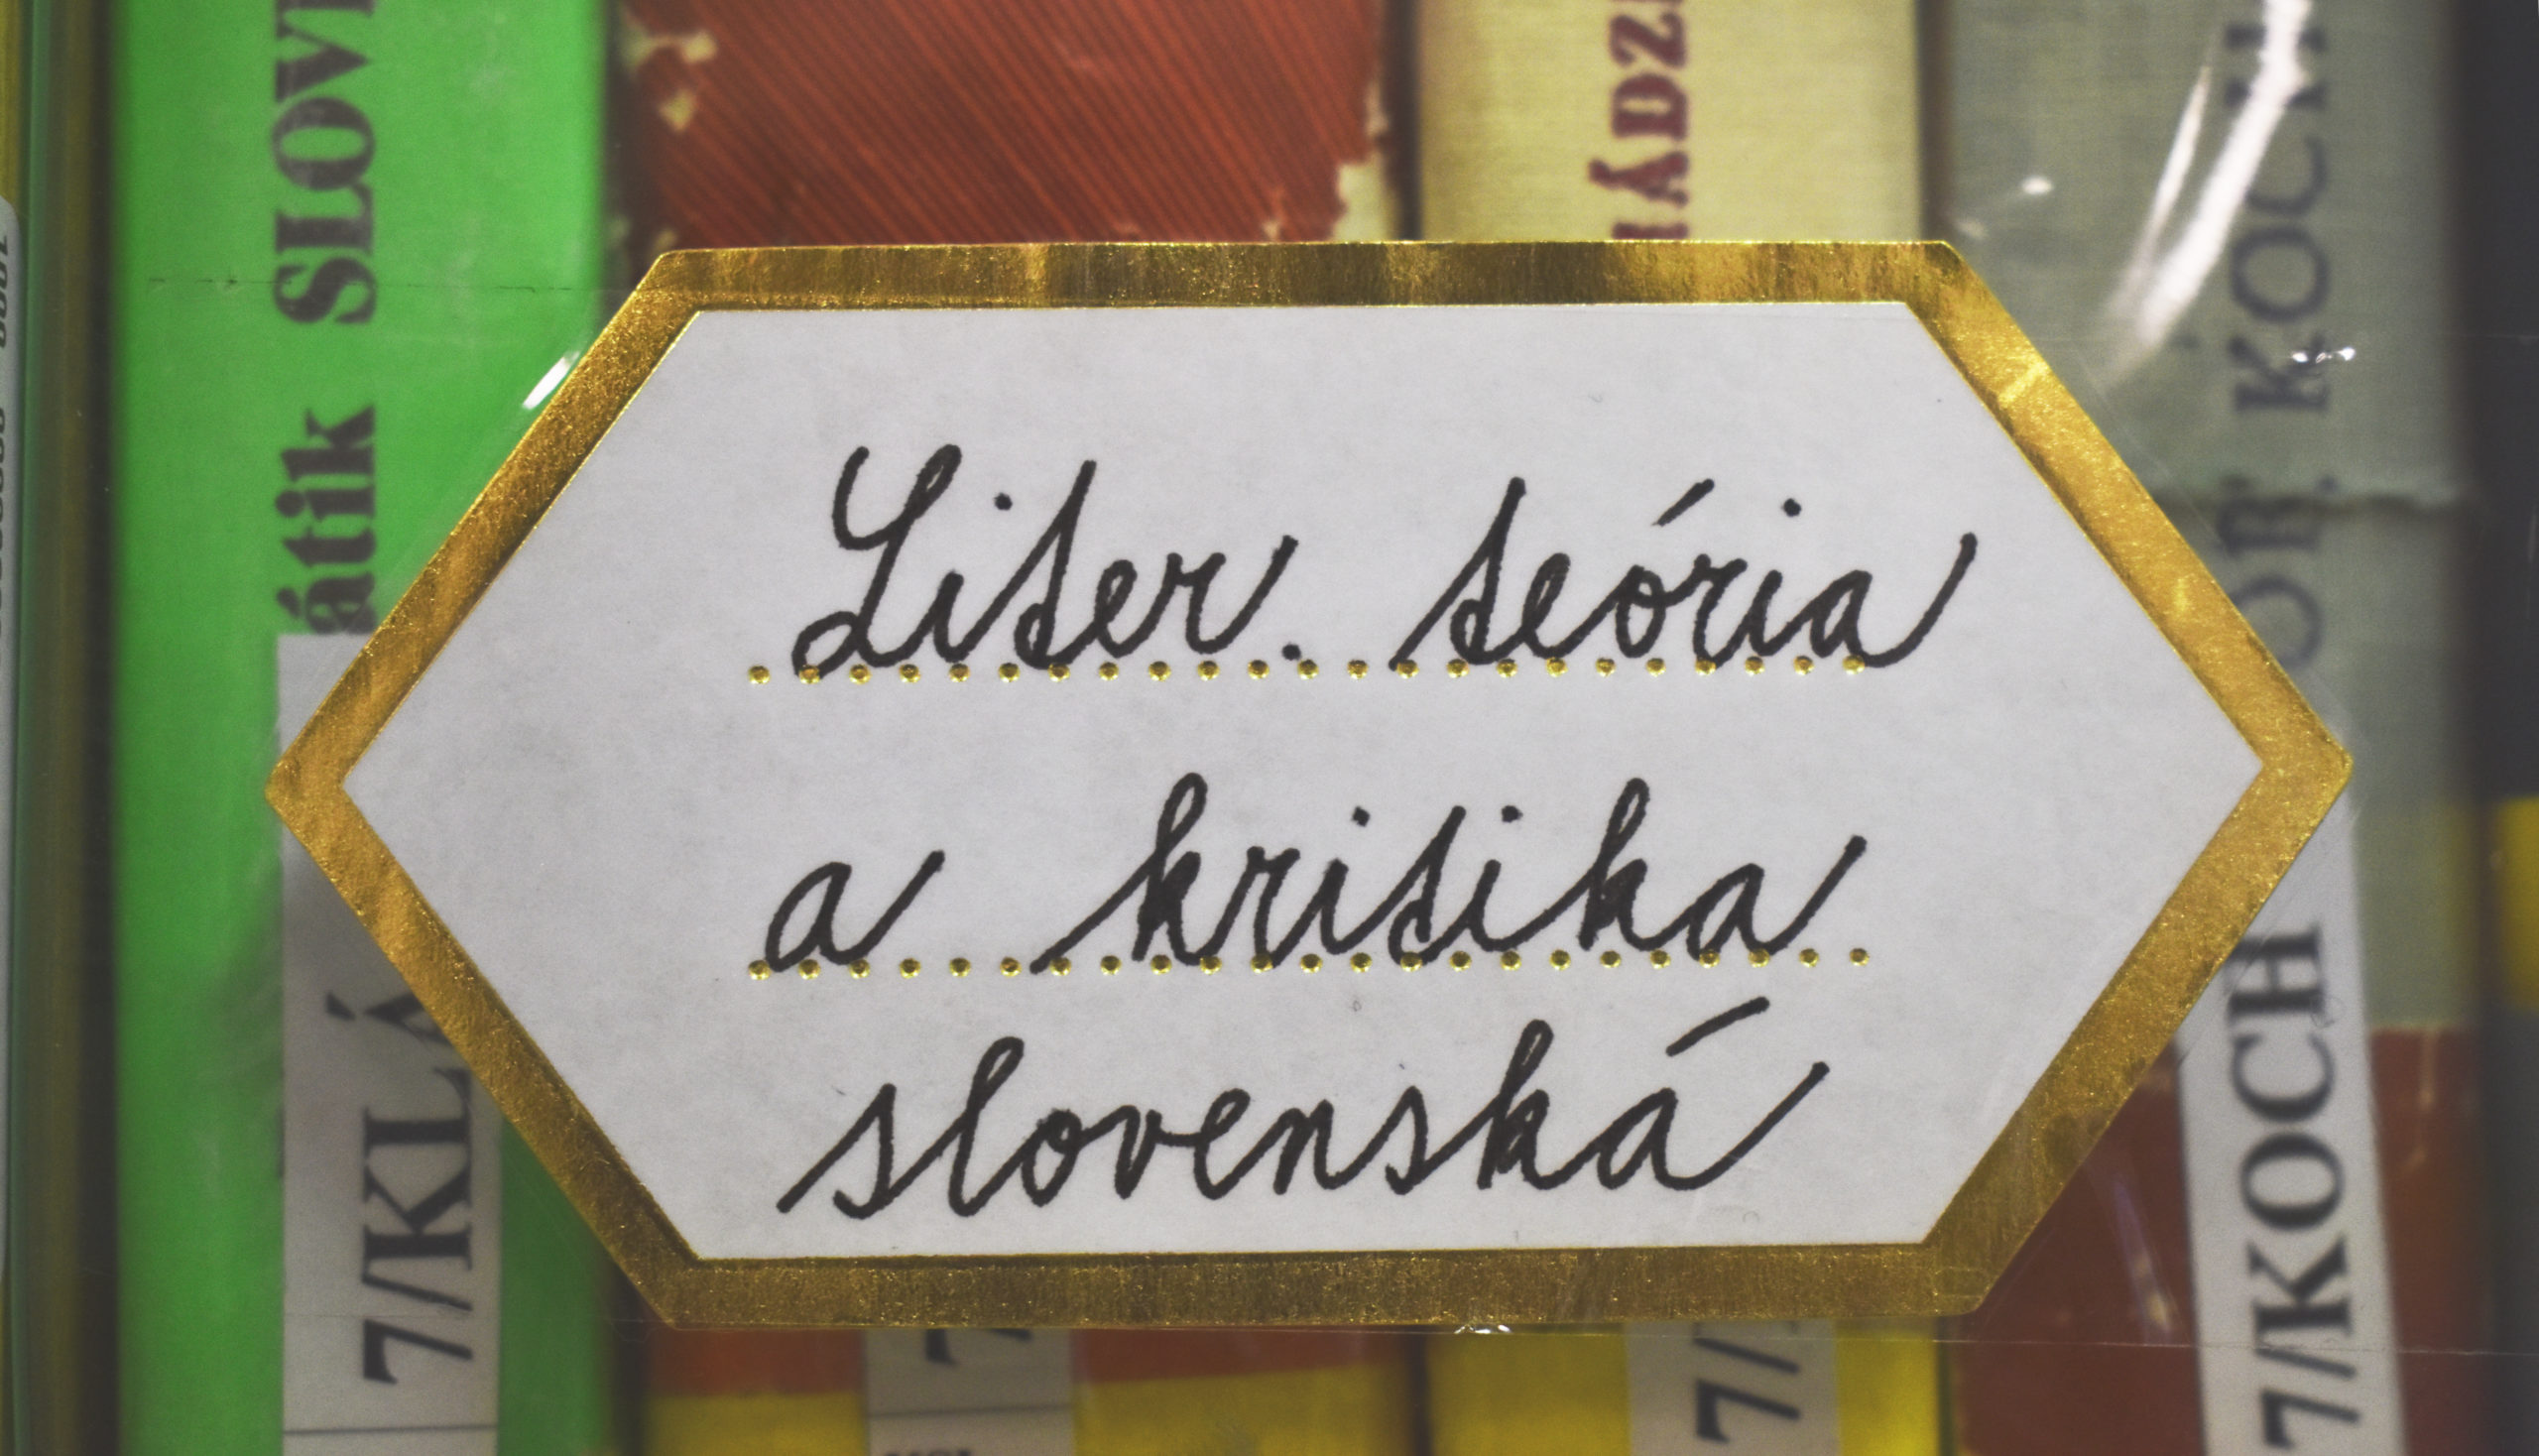 Liter. teória
a kritika
slovenská
átik SLOV
7/KLÁ
KOCH
7/KOCH